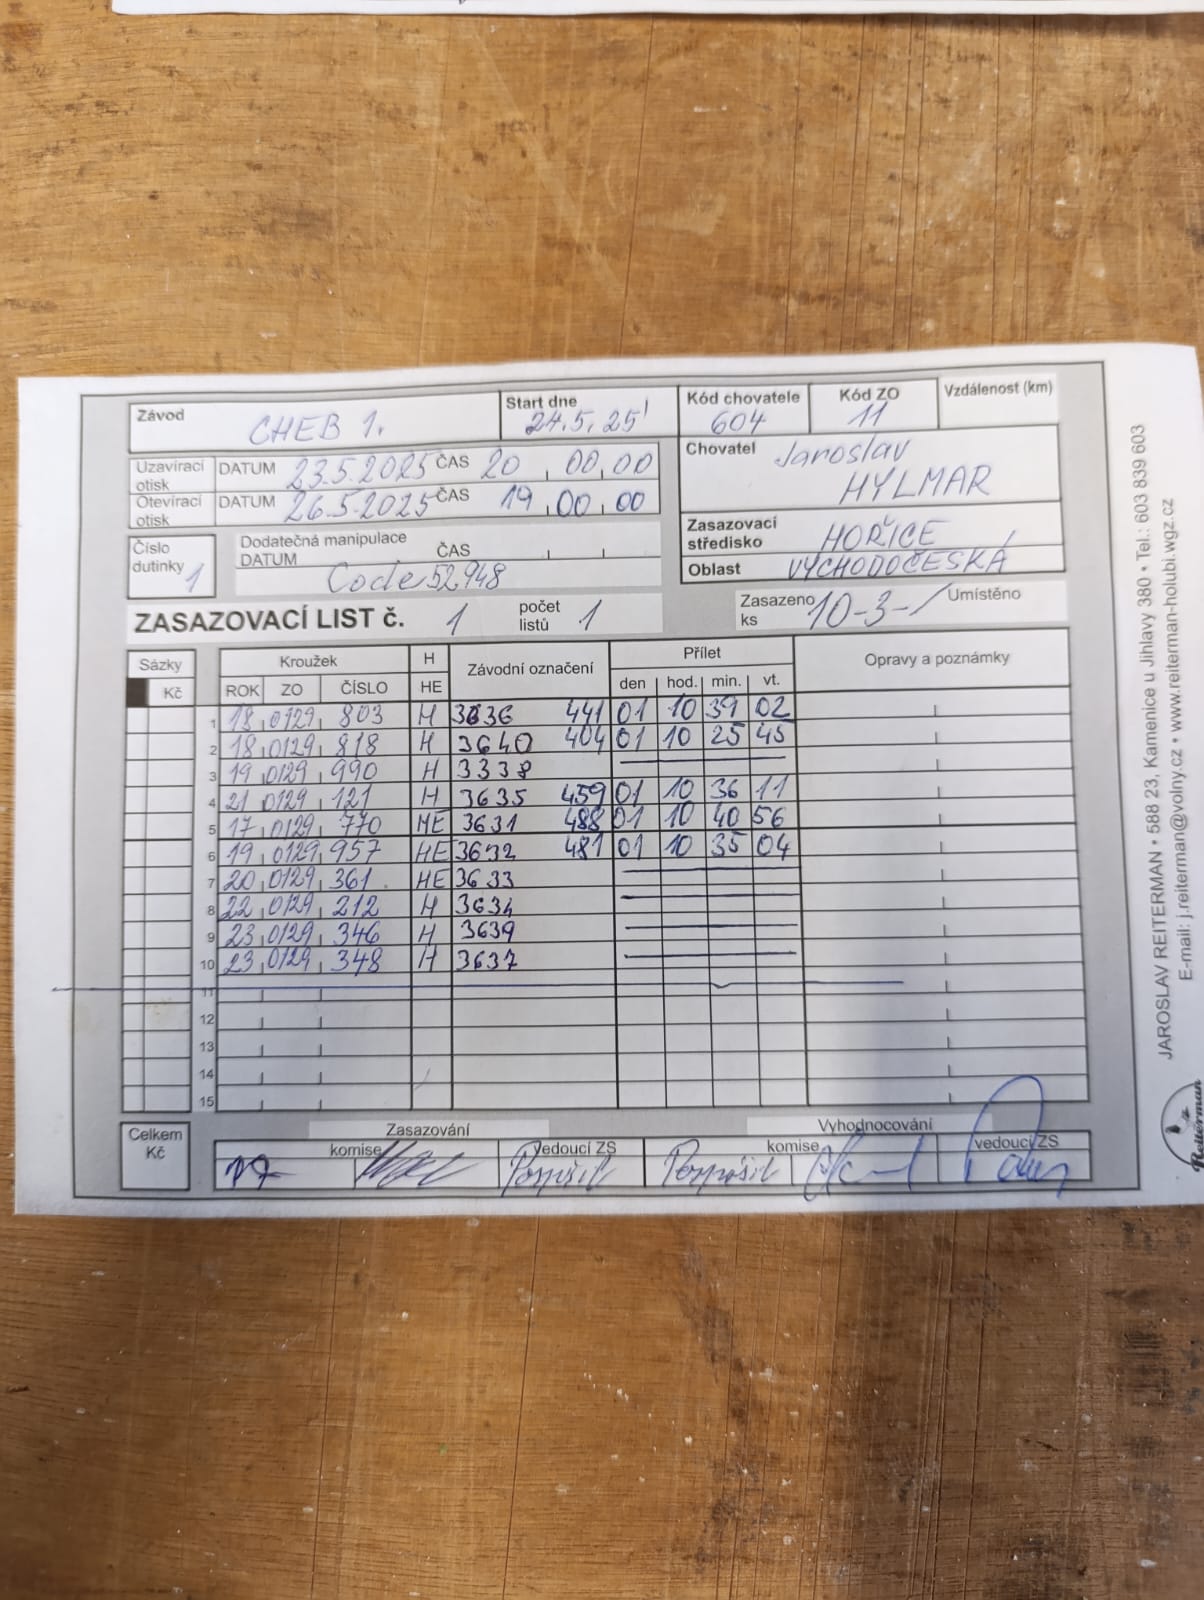 Závod CHEB 1. Start dne 24.5.25 Kód chovatele 604 Kód ZO 11 Vzdálenost (km)
Uzavírací otisk DATUM 23.5.2025 ČAS 20 00 00
Otevírací otisk DATUM 26.5.2025 ČAS 19 00 00
Chovatel Jaroslav HYLMAR
Číslo dutinky 1
Dodatečná manipulace
DATUM ČAS
Code 52948
Zasazovací středisko HOŘICE
Oblast VÝCHODOČESKÁ
ZASAZOVACÍ LIST č. 1 počet listů 1 Zasazeno ks 10-3- Umístěno
Sázky Kroužek H Závodní označení Přílet Opravy a poznámky
Kč ROK ZO ČÍSLO HE den hod. min. vt.
1 18 0129 803 H 3636 441 01 10 39 02
2 18 0129 818 H 3640 404 01 10 25 45
3 19 0129 990 H 3338
4 21 0129 121 H 3635 459 01 10 36 11
5 17 0129 770 HE 3631 488 01 10 40 56
6 19 0129 957 HE 3632 481 01 10 35 04
7 20 0129 361 HE 3633
8 22 0129 212 H 3634
9 23 0129 346 H 3639
10 23 0129 348 H 3637
11
12
13
14
15
Celkem Kč
Zasazování Vyhodnocování
komise vedoucí ZS komise vedoucí ZS
Pospíšil Pospíšil
JAROSLAV REITERMAN • 588 23, Kamenice u Jihlavy 380 • Tel.: 603 839 603
E-mail: j.reiterman@volny.cz • www.reiterman-holubi.wgz.cz
Reiterman